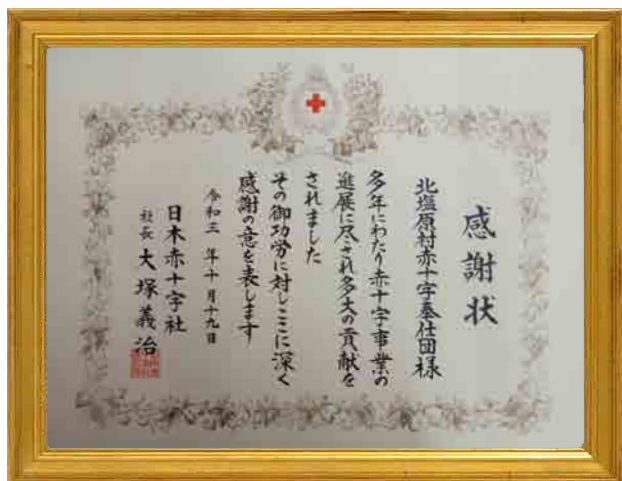 感謝状
北塩原村赤十字奉仕団様
多年にわたり赤十字事業の
進展に尽され多大の貢献を
されました
その御功労に対しここに深く
感謝の意を表します
令和三年十月十九日
日本赤十字社
社長 大塚義治